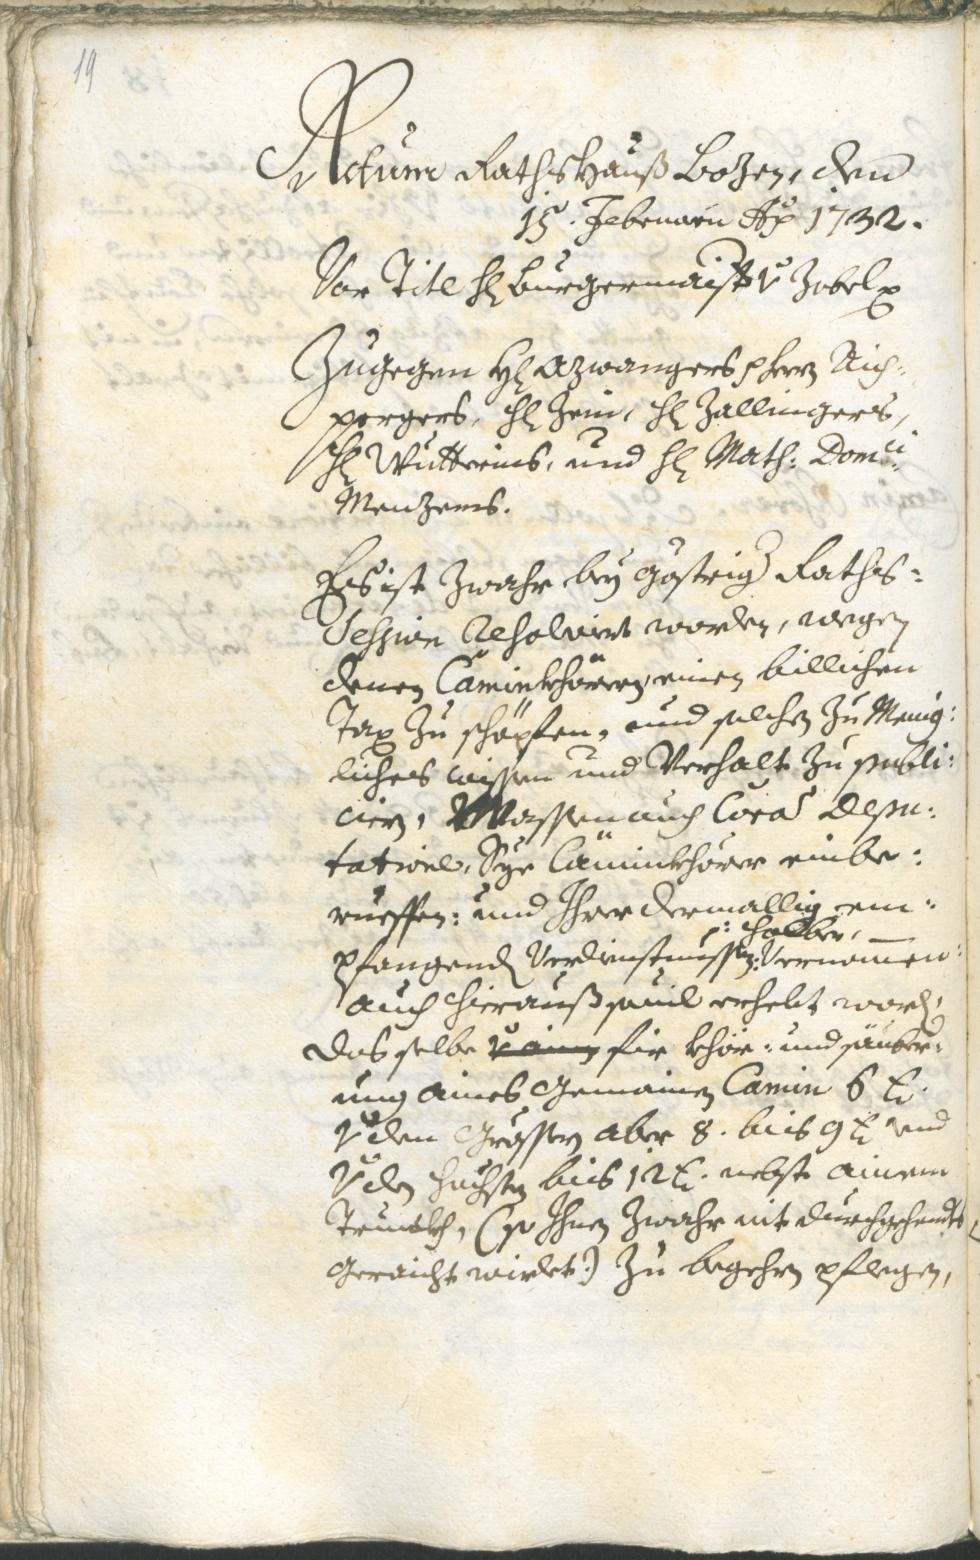 19
Actum Rathshauß Bozen, den
15. Februarii Ao 1732.
Vor Titl H Burgermaister v Zobel
Zugegen H Azwangers, Herr Aich-
pergers, H Zein, H Zallingers,
H Wuttrins, und H Math: Domci
Menzens.
Es ist zwahr bey gestrig Raths-
Session Resolviert worden, wegen
denen Caminkhörern, einen billichen
Tax zu schöpfen, und solchen zu Menig-
liches wissen und Verhalt zu publi-
cirn, Massen auch Cora Depu-
tatione, Sye Caminkhörer einbe-
rueffen: und Ihrer dermallig em-
halber,
pfangend Verdienstnussen: Vernomen:
auch hierauß souil erhelt word,
das selbe für khör- und säuber-
ung aines Gemainen Camin 6 x
v den Grossen aber 8. biß 9 x und
v den hechsten biß 12 x. nebst ainem
Trunckh, (so Ihnen zwahr nit durchgehents
geraicht wirdet:) zu begehrn pflegen,